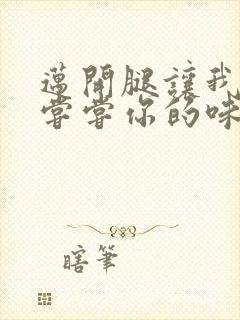 邁開腿讓我
嘗嘗你的味
瞎筆